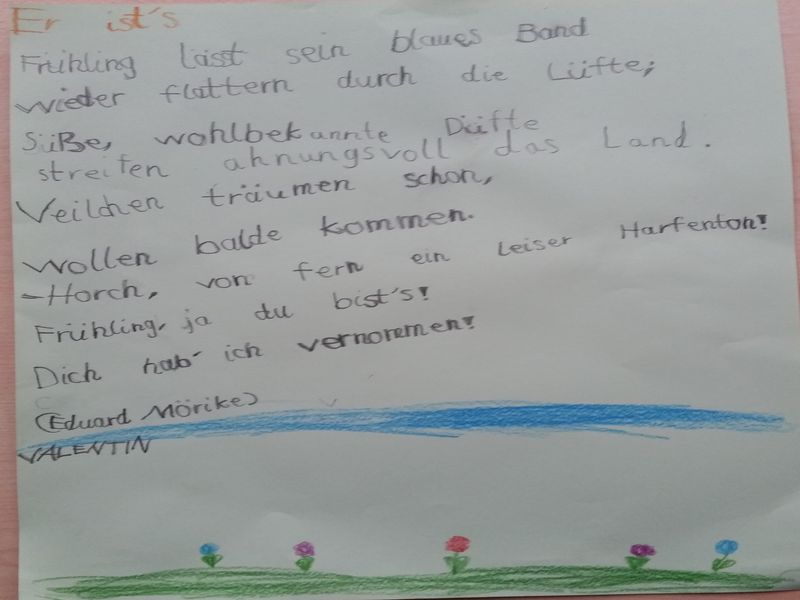 Er ist's
Frühling lässt sein blaues Band
wieder flattern durch die Lüfte;
Süße, wohlbekannte Düfte
streifen ahnungsvoll das Land.
Veilchen träumen schon,
wollen balde kommen.
-Horch, von fern ein leiser Harfenton!
Frühling, ja du bist's!
Dich hab' ich vernommen!
(Eduard Mörike)
VALENTIN